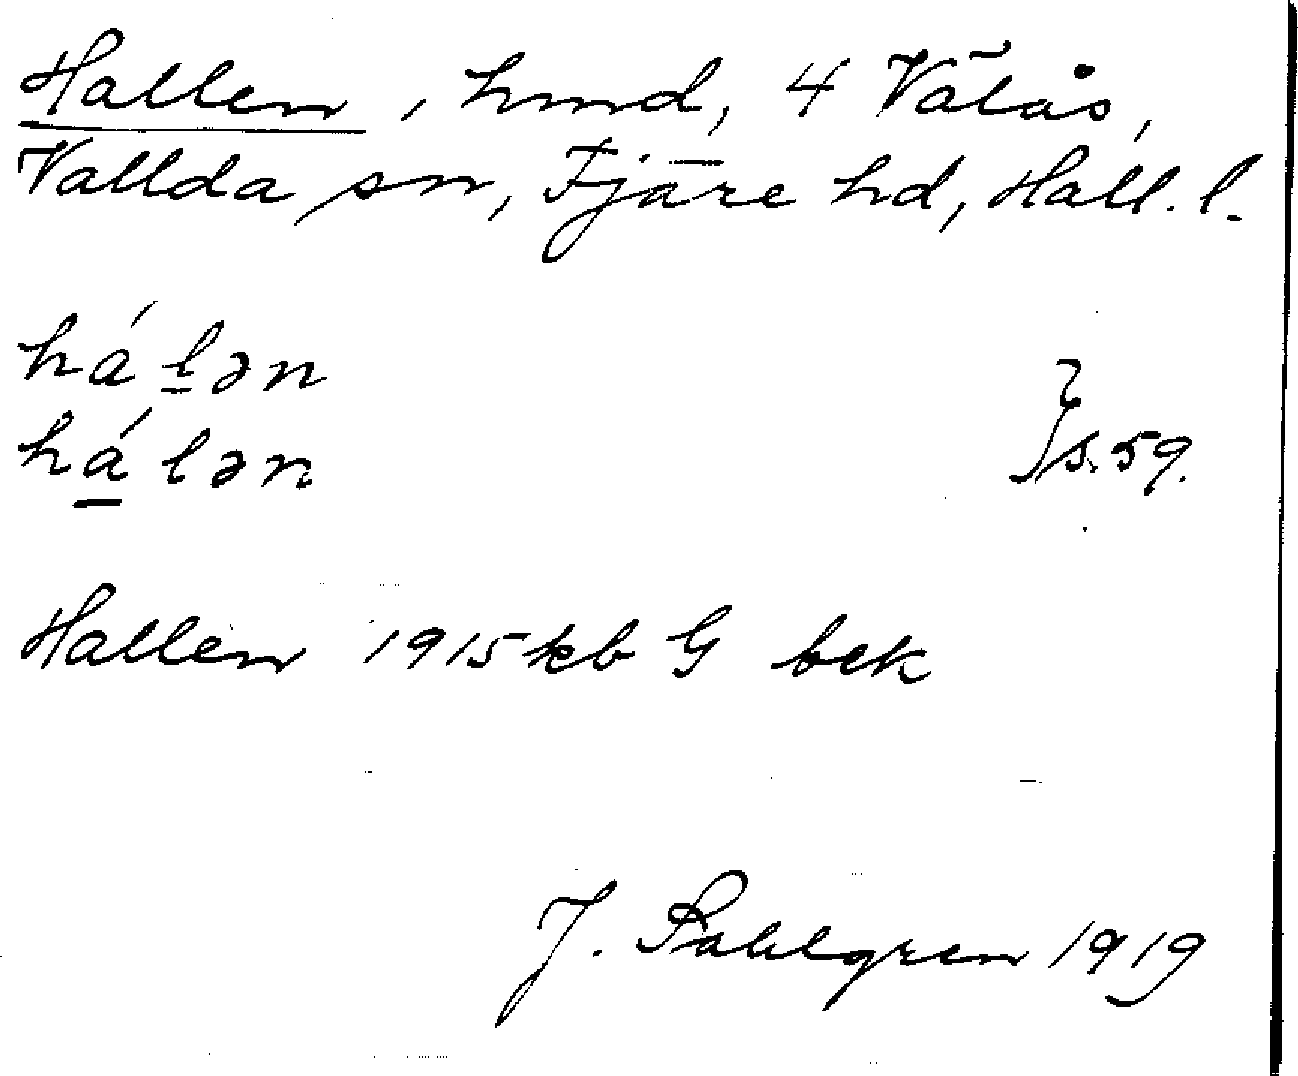 Hallen, hmd, 4 Välås,
Vallda sn, Fjäre hd, Hall. l.
há l̲ən
há̲ lən } s. 59.
Hallen 1915 kb G bek
J. Sahlgren 1919